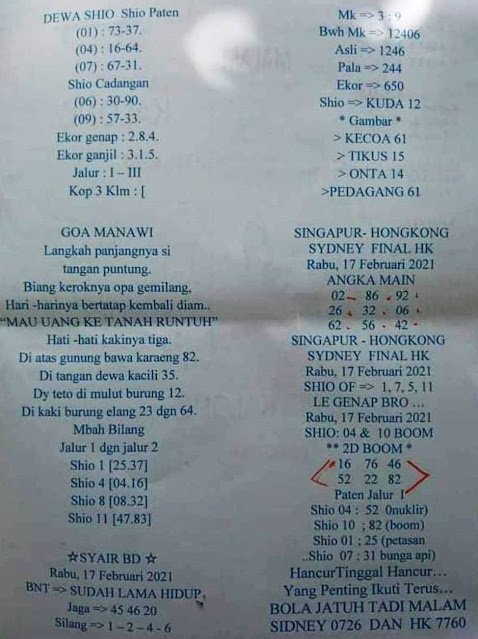 DEWA SHIO Shio Paten
(01) : 73-37.
(04) : 16-64.
(07) : 67-31.
Shio Cadangan
(06) : 30-90.
(09) : 57-33.
Ekor genap : 2.8.4.
Ekor ganjil : 3.1.5.
Jalur : I – III
Kop 3 Klm : [
GOA MANAWI
Langkah panjangnya si
tangan puntung.
Biang keroknya opa gemilang,
Hari -harinya bertatap kembali diam..
“MAU UANG KE TANAH RUNTUH”
Hati -hati kakinya tiga.
Di atas gunung bawa karaeng 82.
Di tangan dewa kacili 35.
Dy teto di mulut burung 12.
Di kaki burung elang 23 dgn 64.
Mbah Bilang
Jalur 1 dgn jalur 2
Shio 1 [25.37]
Shio 4 [04.16]
Shio 8 [08.32]
Shio 11 [47.83]
☆SYAIR BD ☆
Rabu, 17 Februari 2021
BNT => SUDAH LAMA HIDUP,
Jaga => 45 46 20
Silang => 1 – 2 – 4 - 6
Mk => 3 : 9
Bwh Mk => 12406
Asli => 1246
Pala => 244
Ekor => 650
Shio => KUDA 12
* Gambar *
> KECOA 61
> TIKUS 15
> ONTA 14
>PEDAGANG 61
SINGAPUR- HONGKONG
SYDNEY FINAL HK
Rabu, 17 Februari 2021
ANGKA MAIN
02 86 92
26 32 06
62 56 42
SINGAPUR - HONGKONG
SYDNEY FINAL HK
Rabu, 17 Februari 2021
SHIO OF => 1, 7, 5, 11
LE GENAP BRO …
Rabu, 17 Februari 2021
SHIO: 04 & 10 BOOM
** 2D BOOM *
16 76 46
52 22 82
Paten Jalur I
Shio 04 : 52 0nuklir)
Shio 10 ; 82 (boom)
Shio 01 ; 25 (petasan
..Shio 07 : 31 bunga api)
HancurTinggal Hancur…
Yang Penting Ikuti Terus…
BOLA JATUH TADI MALAM
SIDNEY 0726 DAN HK 7760